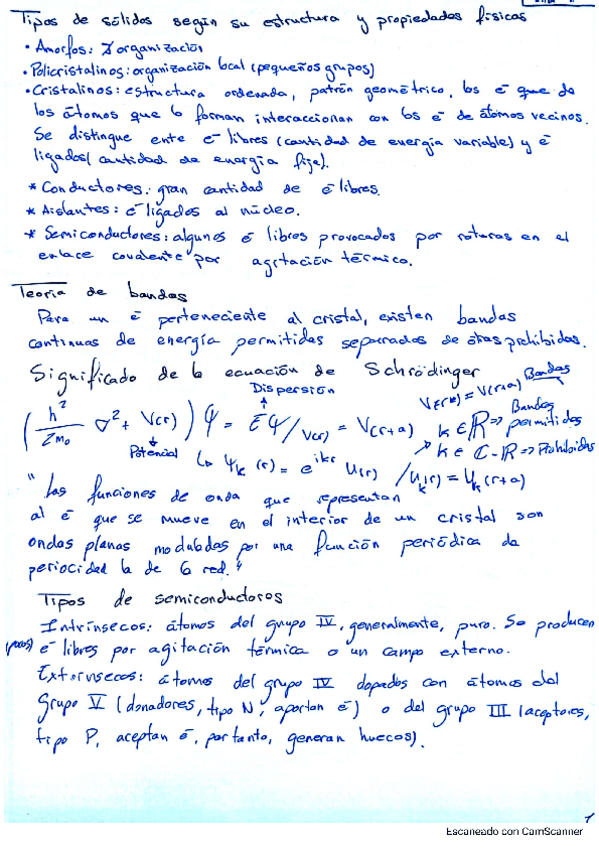 Tipos de sólidos según su estructura y propiedades físicas
• Amorfos: ∄ organización
• Policristalinos: organización local (pequeños grupos)
• Cristalinos: estructura ordenada, patrón geométrico, los ē que de
los átomos que lo forman interaccionan con los ē de átomos vecinos.
Se distingue ente ē libres (cantidad de energía variable) y ē
ligados (cantidad de energía fija).
* Conductores: gran cantidad de ē libres.
* Aislantes: ē ligados al núcleo.
* Semiconductores: algunos ē libres provocados por roturas en el
enlace covalente por agitación térmico.
Teoría de bandas
Para un ē perteneciente al cristal, existen bandas
continuas de energía permitidas separadas de otras prohibidas.
Significado de la ecuación de Schrödinger
Bandas
Dispersión
(ħ²/2m₀ ∇² + V(r)) Ψ = E Ψ / V(r) = V(r+a)
k ∈ ℝ => Bandas permitidas
Potencial
↳ Ψk (r) = e^ikr U(r) / Uk(r) = Uk(r+a)
k ∈ ℂ-ℝ => Prohibidas
"Las funciones de onda que representan
al ē que se mueve en el interior de un cristal son
ondas planas moduladas por una función periódica de
periocidad la de la red."
Tipos de semiconductores
Intrínsecos: átomos del grupo IV, generalmente, puro. Se producen
(pocos) ē libres por agitación térmica o un campo externo.
Extrínsecos: átomos del grupo IV dopados con átomos del
Grupo V (donadores, tipo N, aportan ē) o del grupo III (aceptores,
tipo P, aceptan ē, por tanto, generan huecos).
1
Escaneado con CamScanner